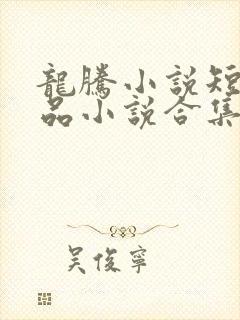 龍騰小說短
品小說合集
吳俊寧